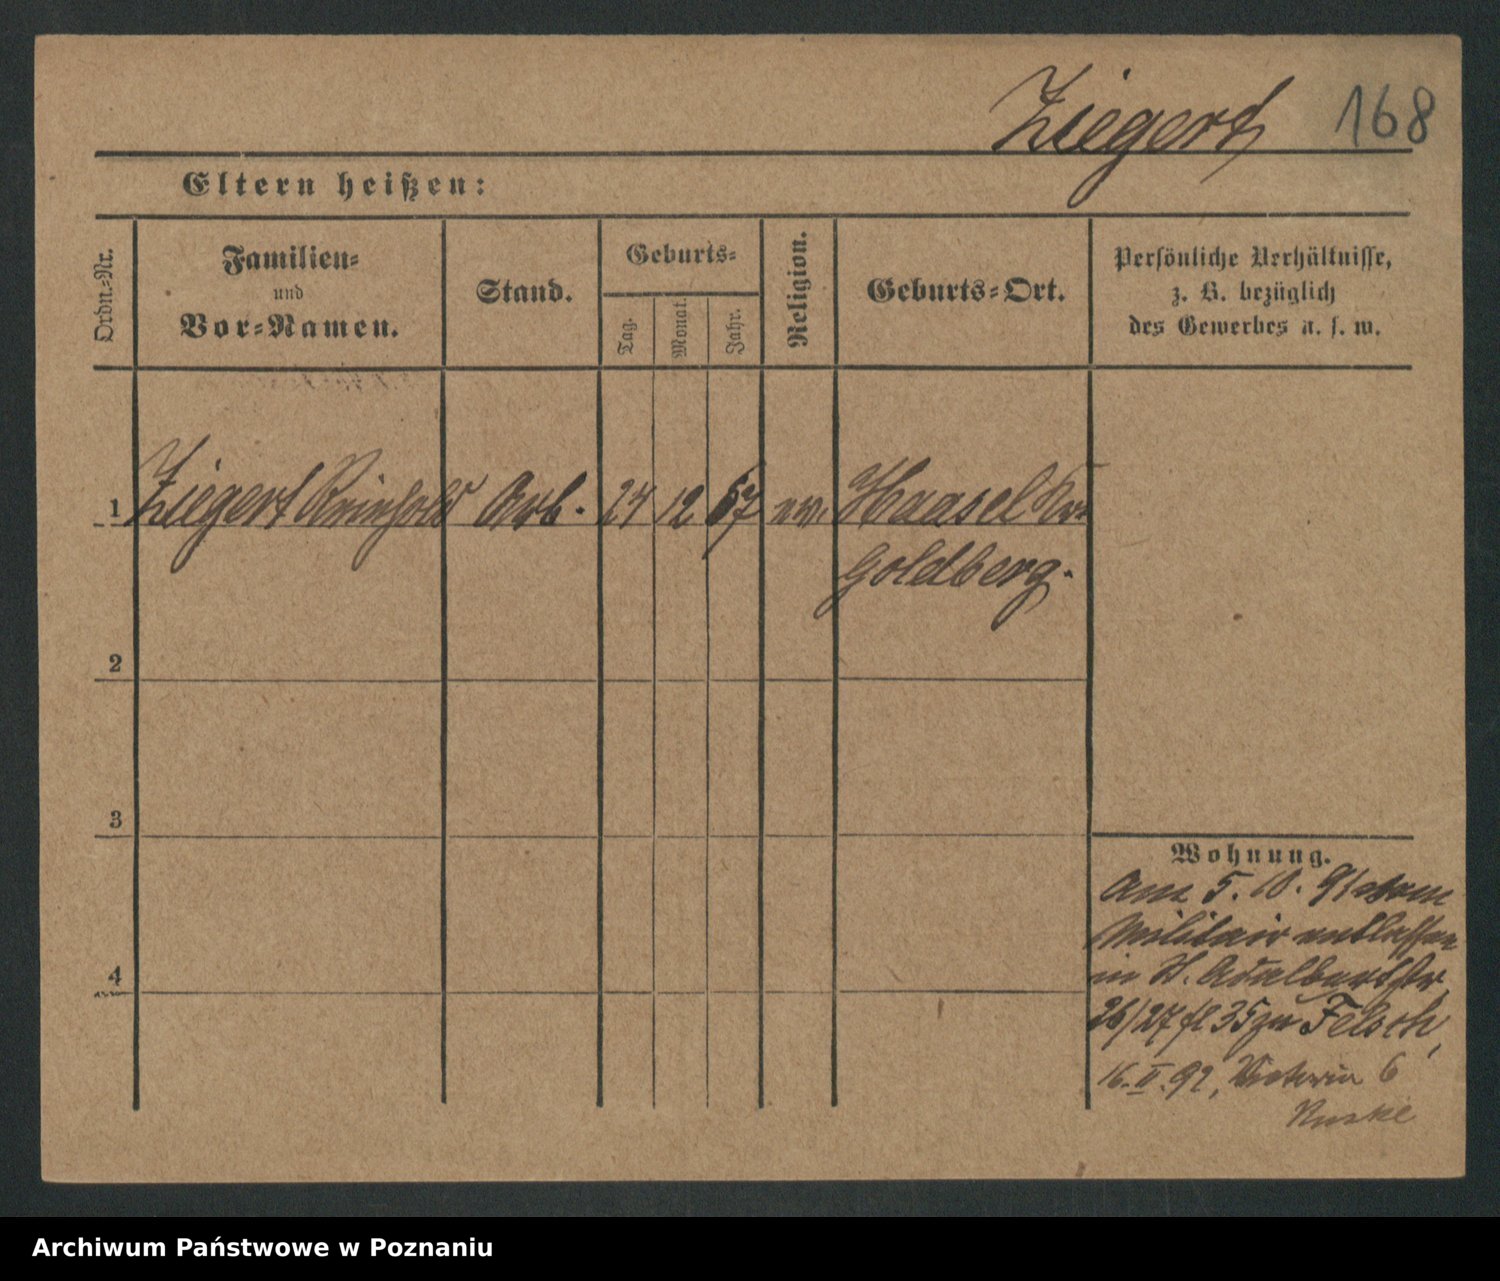 Ziegert 168
Eltern heißen:
Ordn.-Nr.
Familien-
und
Vor-Namen.
Stand.
Geburts-
Tag.
Monat.
Jahr.
Religion.
Geburts-Ort.
Persönliche Verhältnisse,
z. B. bezüglich
des Gewerbes u. s. w.
1 Ziegert Reinhold Arb. 24 12 67 ev. Haasel Kr.
Goldberg.
2
3
4
Wohnung.
Am 5. 10. 91 vom
Militair entlassen
in St. Adalbertstr
26/27 fl 35 zu Felsch,
16.II.92, Victoria 6
Ruske
Archiwum Państwowe w Poznaniu